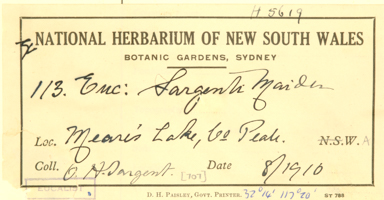 H 5619
NATIONAL HERBARIUM OF NEW SOUTH WALES
BOTANIC GARDENS, SYDNEY
113. Euc: Sargenti Maiden
Loc. Meare's Lake, Co Peak. N.S.W. A
Coll. O H. Sargent. [707] Date 8/1910
D. H. PAISLEY, GOVT. PRINTER. 32°14' 117°20' ST 786